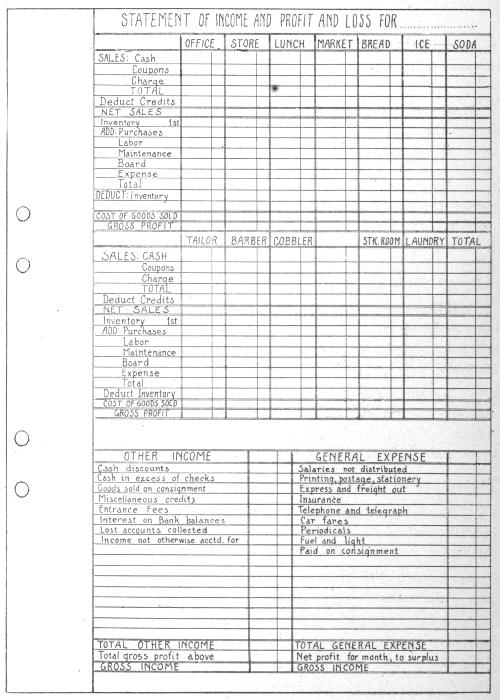 STATEMENT OF INCOME AND PROFIT AND LOSS FOR....................
OFFICE STORE LUNCH MARKET BREAD ICE SODA
SALES: Cash
Coupons
Charge
TOTAL
Deduct Credits
NET SALES
Inventory 1st
ADD: Purchases
Labor
Maintenance
Board
Expense
Total
DEDUCT: Inventory
COST OF GOODS SOLD
GROSS PROFIT
TAILOR BARBER COBBLER STK. ROOM LAUNDRY TOTAL
SALES: CASH
Coupons
Charge
TOTAL
Deduct Credits
NET SALES
Inventory 1st
ADD: Purchases
Labor
Maintenance
Board
Expense
Total
Deduct Inventory
COST OF GOODS SOLD
GROSS PROFIT
OTHER INCOME GENERAL EXPENSE
Cash discounts Salaries not distributed
Cash in excess of checks Printing, postage, stationery
Goods sold on consignment Express and freight out
Miscellaneous credits Insurance
Entrance Fees Telephone and telegraph
Interest on Bank balances Car fares
Lost accounts collected Periodicals
Income not otherwise acctd. for Fuel and light
Paid on consignment
TOTAL OTHER INCOME TOTAL GENERAL EXPENSE
Total gross profit above Net profit for month, to surplus
GROSS INCOME GROSS INCOME